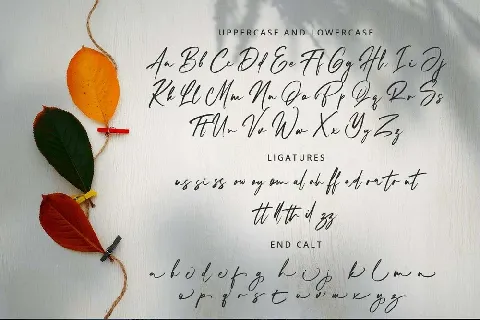 UPPERCASE AND LOWERCASE
Aa Bb Cc Dd Ee Ff Gg Hh Ii Jj
Kk Ll Mm Nn Oo Pp Qq Rr Ss
Tt Uu Vv Ww Xx Yy Zz
LIGATURES
us si ss ow oy om al oh ff ad or at o nt
tt ll th il zz
END CALT
a b c d e f g h i j k l m n
o p q r s t u v w x y z